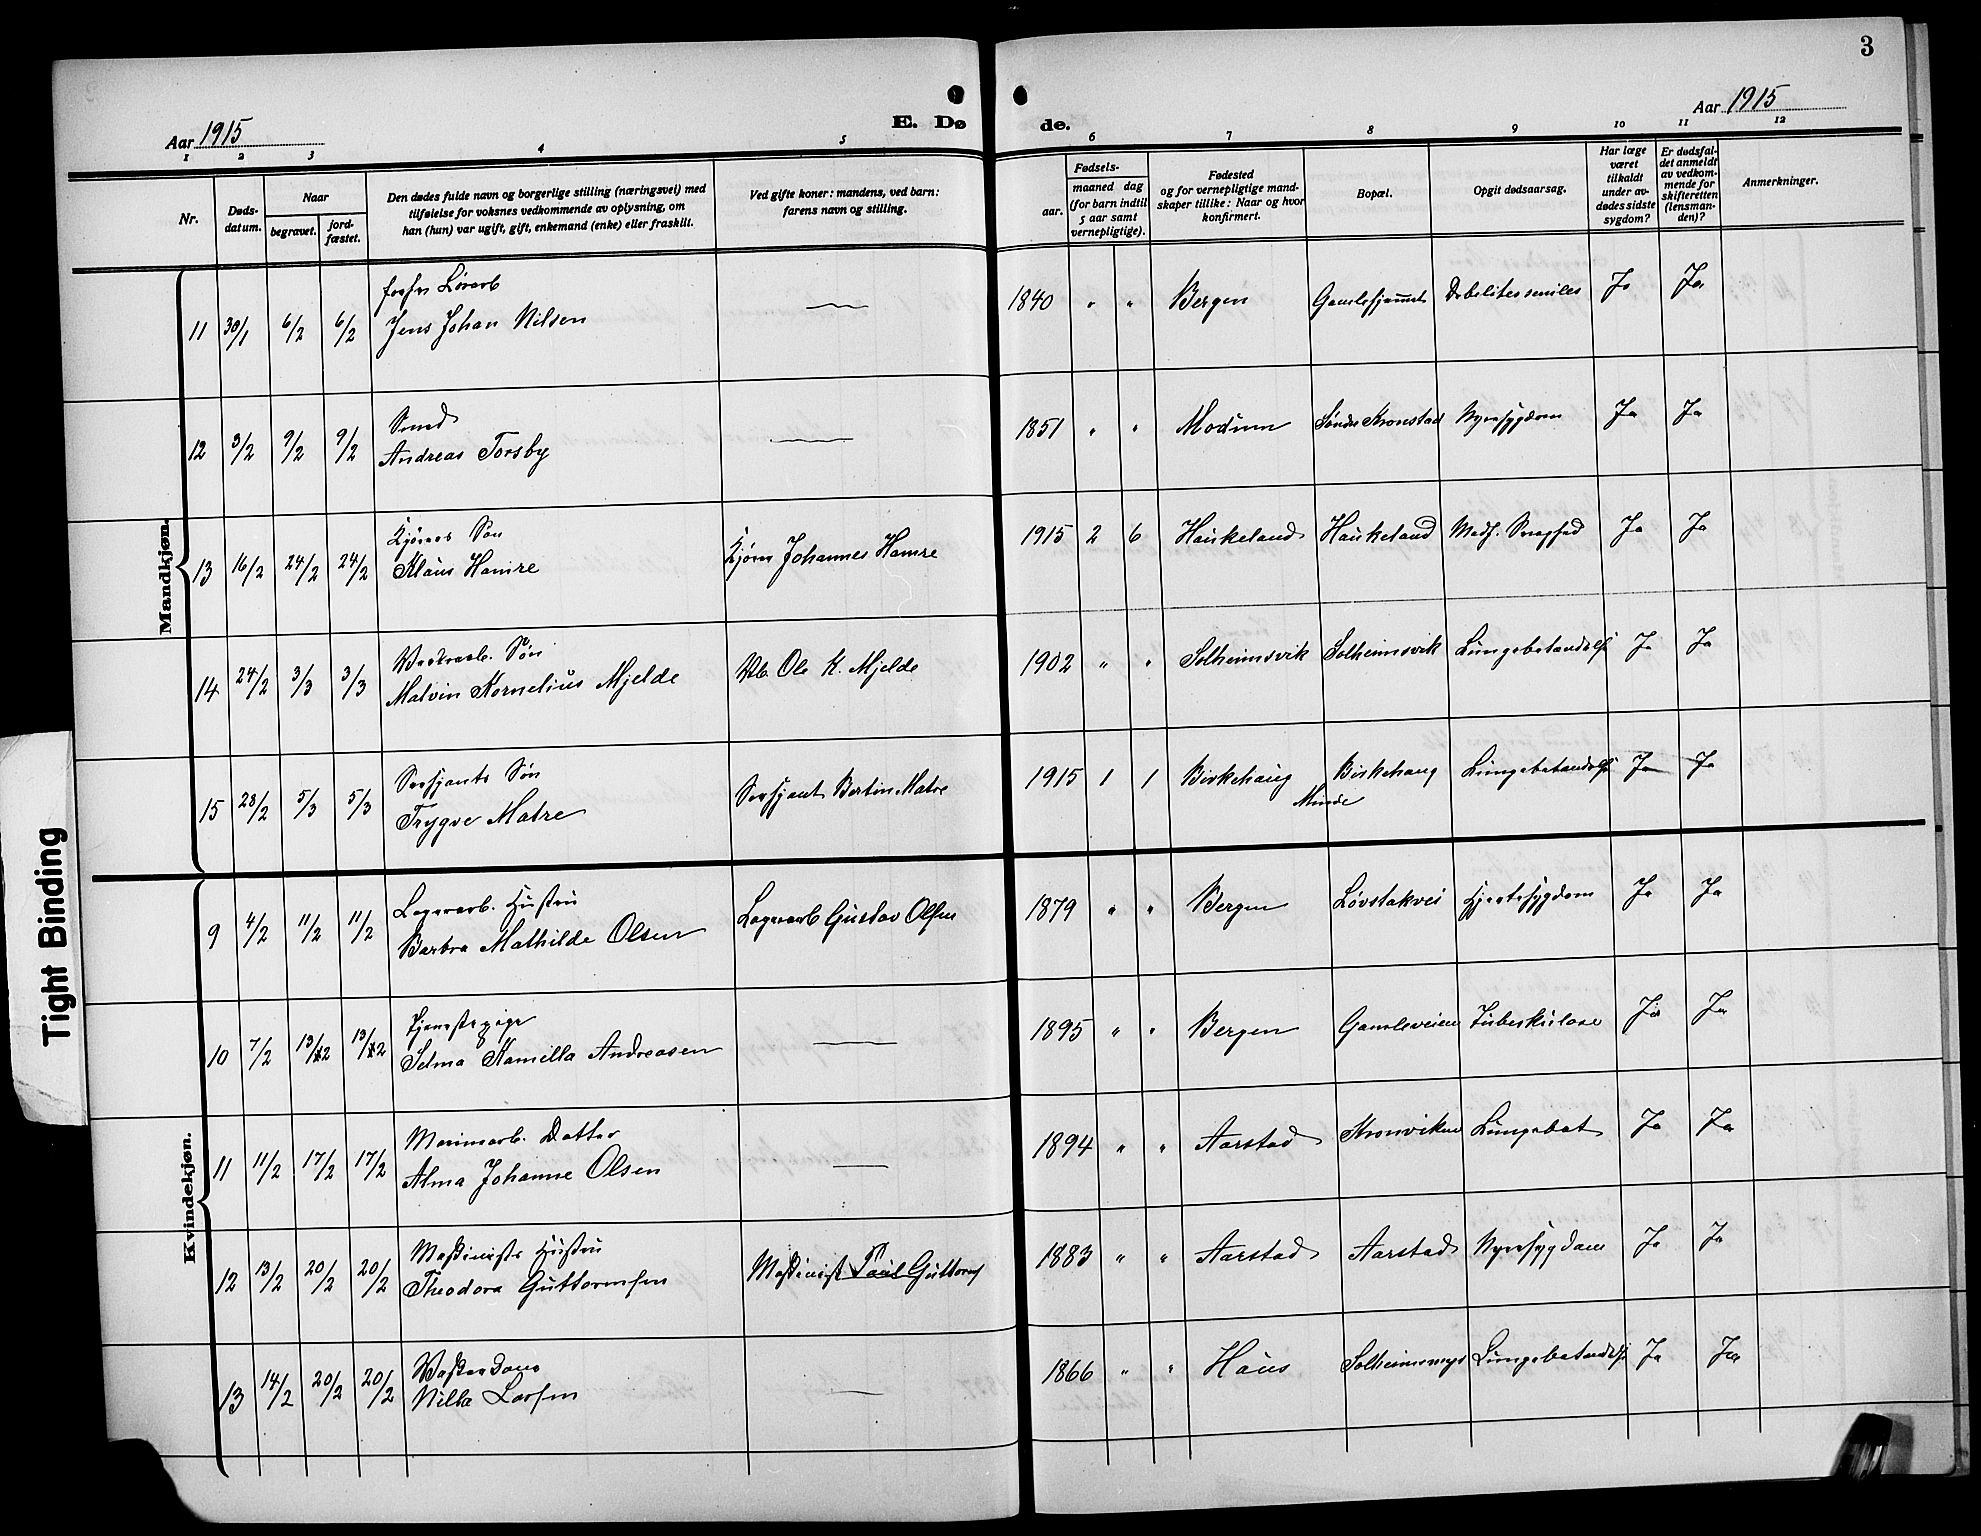 3
Aar 1915
E. Dø
de.
Aar 1915
1 2 3 4 5 6 7 8 9 10 11 12
Nr.
Døds-
datum.
Naar
begravet.
jord-
fæstet.
Den dødes fulde navn og borgerlige stilling (næringsvei) med
tilføielse for voksnes vedkommende av oplysning, om
han (hun) var ugift, gift, enkemand (enke) eller fraskilt.
Ved gifte koner: mandens, ved barn:
farens navn og stilling.
Fødsels-
aar.
maaned dag
(for barn indtil
5 aar samt
vernepligtige).
Fødested
og for vernepligtige mand-
skaper tillike: Naar og hvor
konfirmert.
Bopæl.
Opgit dødsaarsag.
Har læge
været
tilkaldt
under av-
dødes sidste
sygdom?
Er dødsfal-
det anmeldt
av vedkom-
mende for
skifteretten
(lensman-
den)?
Anmerkninger.
Mandkjøn.
11 30/1 6/2 6/2
Jens Johan Nilsen
1840 " " Bergen Gamlehjemmet Debilitas seniles Ja Ja
Smed
12 3/2 9/2 9/2 Andreas Torsby
1851 " " Modum Søndre Kronstad Nyresygdom Ja Ja
Søn
13 16/2 24/2 24/2 Klaus Hamre Johannes Hamre
1915 2 6 Haukeland Haukeland Medf. Svaghed Ja Ja
Søn
14 24/2 3/3 3/3 Malvin Kornelius Mjelde Vb. Ole K. Mjelde
1902 " " Solheimsvik Solheimsvik Lungebetændelse Ja Ja
Sersjants Søn
15 28/2 5/3 5/3 Trygve Matre Sersjant Bertin Matre
1915 1 1 Birkehaug Birkehaug Lungebetændelse Ja Ja
Minde
Kvindekjøn.
Lagerarb. Hustru
9 4/2 11/2 11/2 Barbra Mathilde Olsen Lagerarb Gustav Olsen
1879 " " Bergen Løvstakvei Hjertesygdom Ja Ja
Tjenestepige
10 7/2 13/2 13/2 Selma Kamilla Andreasen
1895 " " Bergen Gamleveien Tuberkulose Ja Ja
Datter
11 11/2 17/2 17/2 Alma Johanne Olsen
1894 " " Aarstad Kronviken Lungebet Ja Ja
Maskinists Hustru
12 13/2 20/2 20/2 Theodora Guttormsen Maskinist Paul Guttorms
1883 " " Aarstad Aarstad Nyresygdom Ja Ja
Vaskerkone
13 14/2 20/2 20/2 Nilla Larsen
1866 " " Haus Solheimsmyr Lungebetændelse Ja Ja
Tight Binding